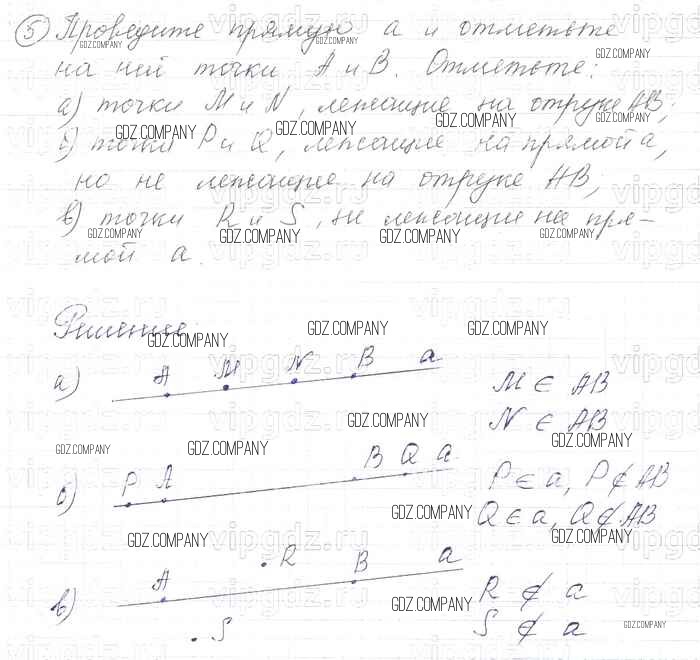 5) Проведите прямую a и отметьте
на ней точки A и B. Отметьте:
а) точки M и N, лежащие на отрезке AB;
б) точки P и Q, лежащие на прямой a,
но не лежащие на отрезке AB;
в) точки R и S, не лежащие на пря-
мой a.
Решение
а) A M N B a M ∈ AB
N ∈ AB
б) P A B Q a P ∈ a, P ∉ AB
Q ∈ a, Q ∉ AB
в) A R B a R ∉ a
S S ∉ a
GDZ.COMPANY
vipgdz.ru